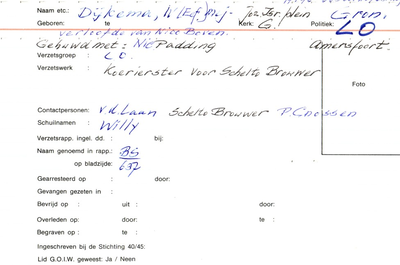 Naam etc.: Dijkema, A (Ef) Mej. Joz. Isr. plein Gron.
Geboren: te: Kerk: G. Politiek: LO
verloofde van Nico Boven.
Gehuwd met: Nic Padding Amersfoort.
Verzetsgroep : L.O.
Verzetswerk Koerierster voor Schelto Brouwer
Foto
Contactpersonen: v.d. Laan Schelto Brouwer P. Cnossen
Schuilnaam : Willy
Verzetsrapp. ingel. dd. : bij:
Naam genoemd in rapp.: BS
op bladzijde: 637
Gearresteerd op : door:
Gevangen gezeten in :
Bevrijd op : uit : door:
Overleden op: door: te :
Begraven op : te :
Ingeschreven bij de Stichting 40/45:
Lid G.O.I.W. geweest: Ja / Neen